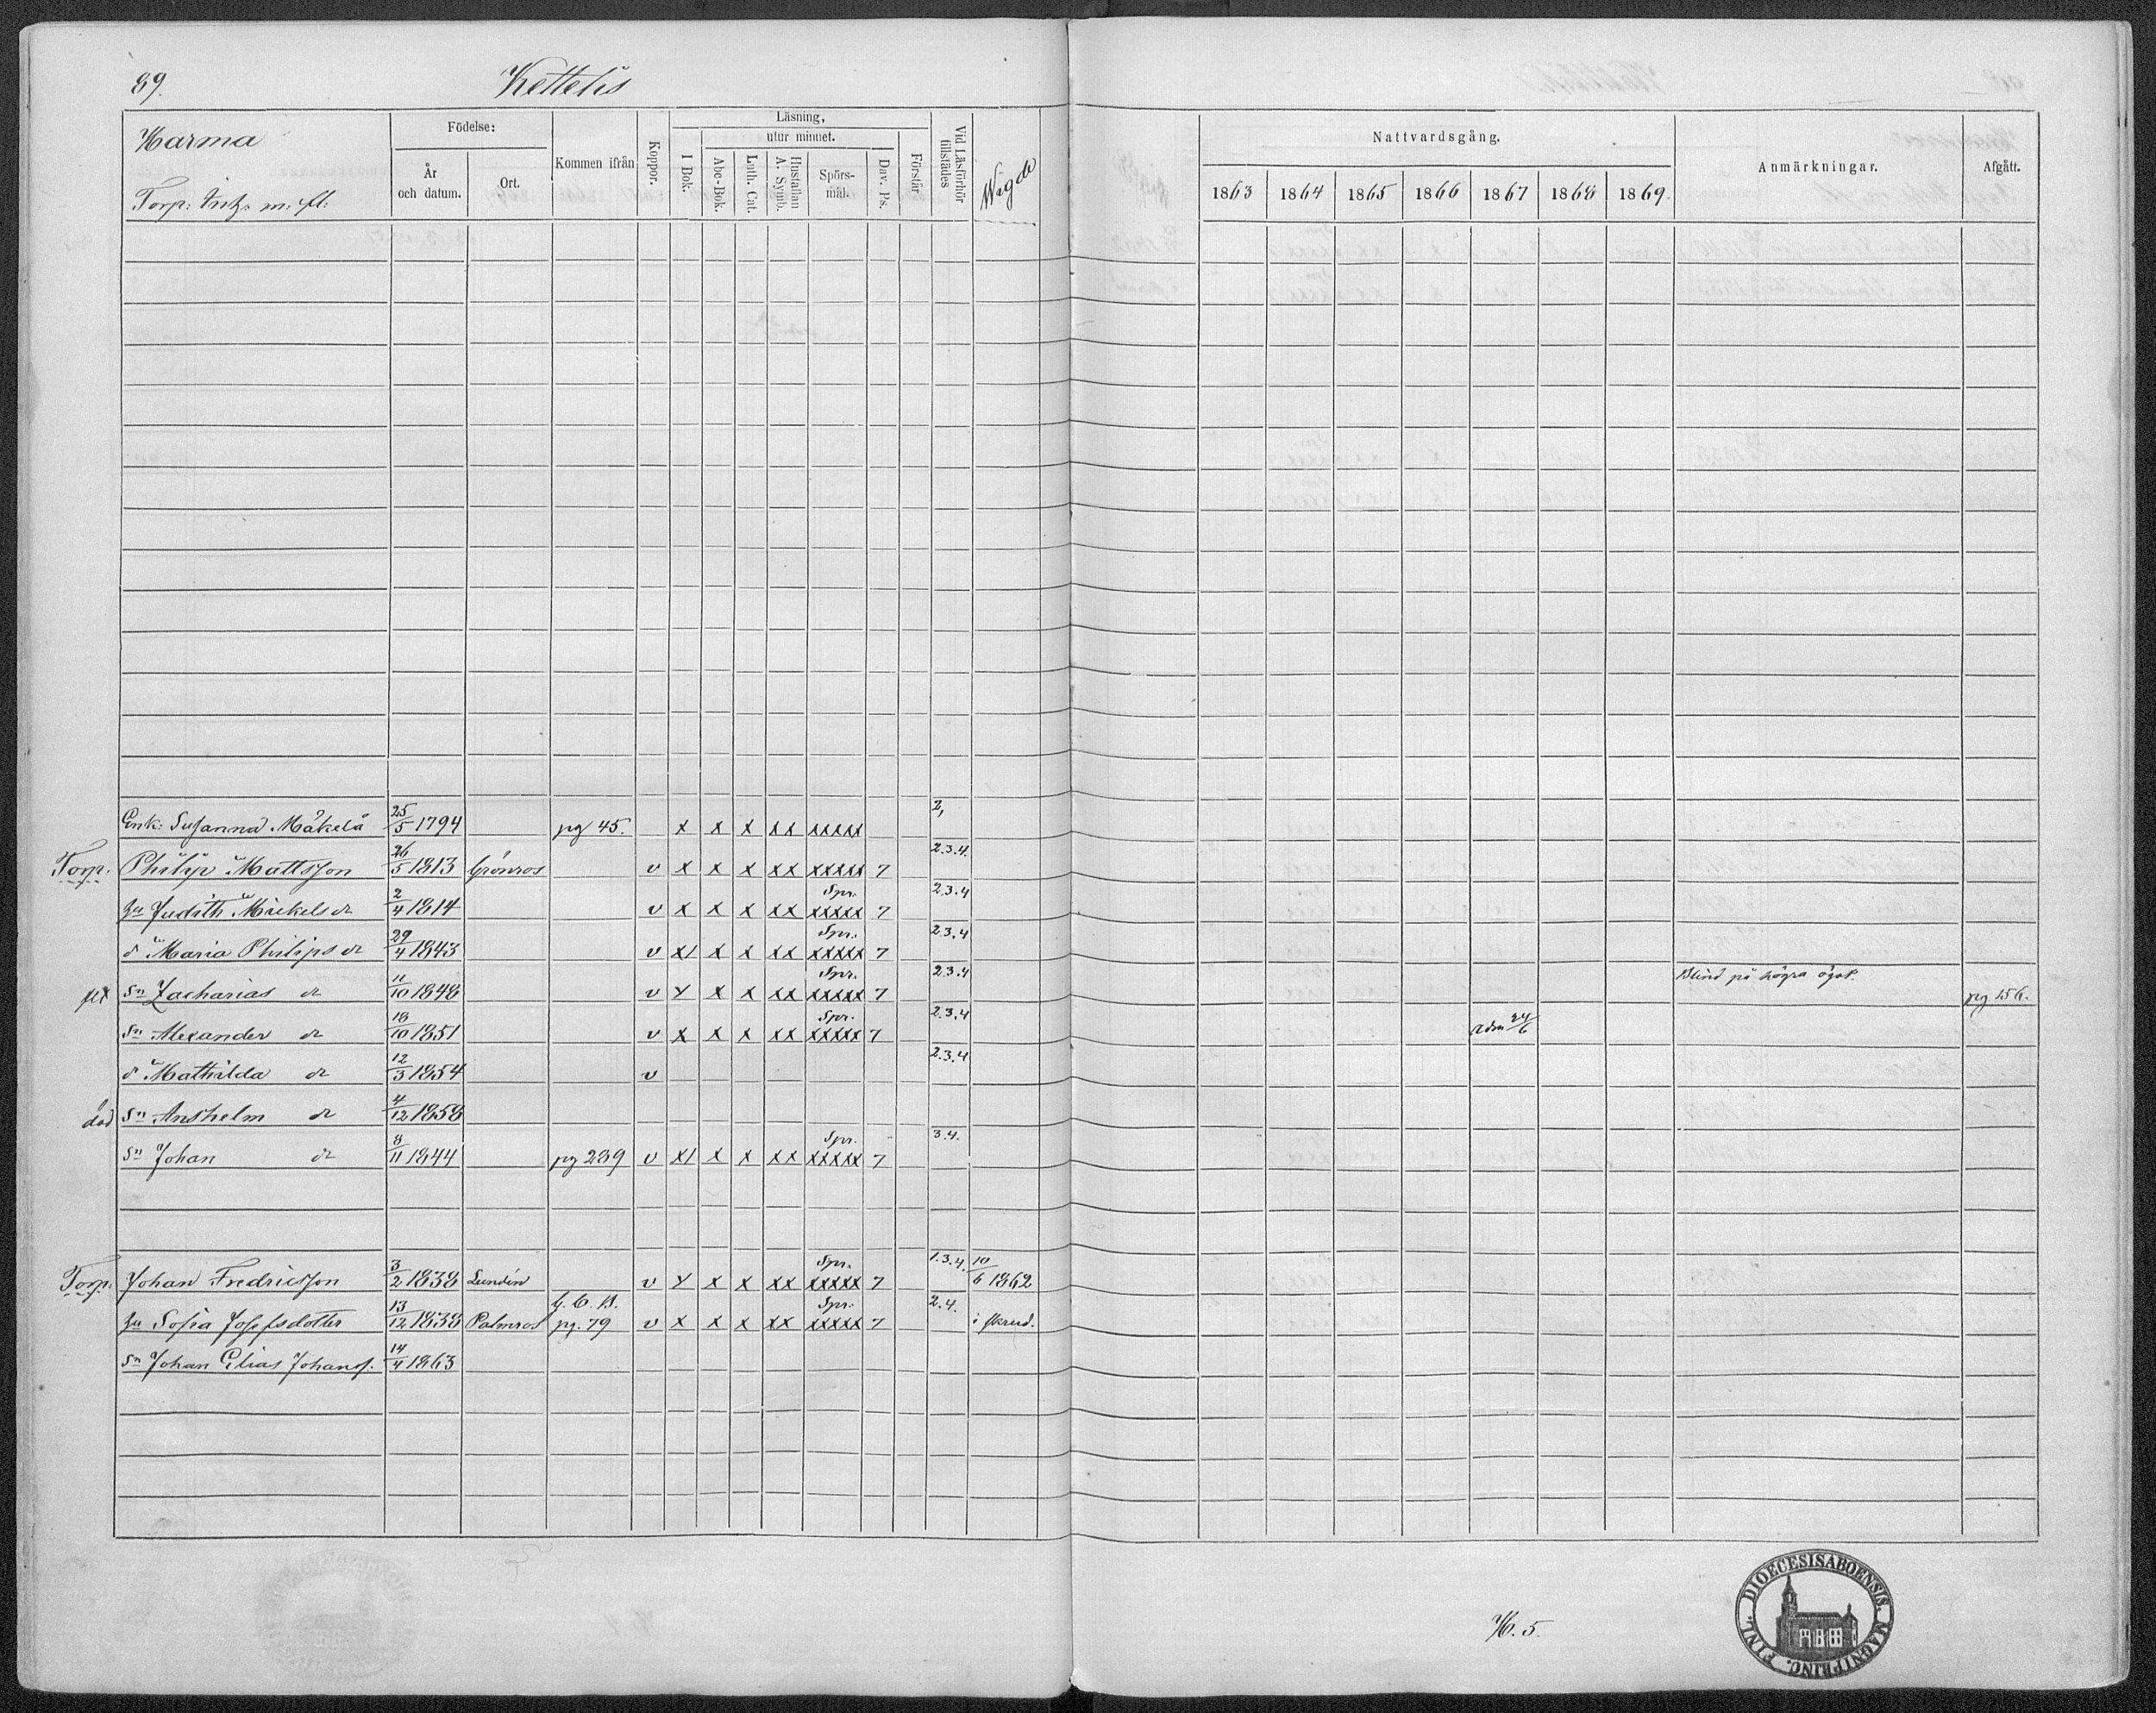 89. Kettelis
Harma
Torp: m: fl:
Födelse:
År och datum.
Ort.
Kommen ifrån
Koppor.
Läsning,
I Bok.
utur minnet.
Abc-Bok.
Luth. Cat.
Hustaflan A. Symb.
Spörsmål.
Dav. Ps.
Förstår
Vid Läsförhör tillstädes
Wigde
Nattvardsgång.
1863 1864 1865 1866 1867 1868 1869.
Anmärkningar.
Afgått.
Enk: Susanna Mäkelä 25/5 1794 pg 45. x x x xx xxxxx 2,
Torp. Philip Mattsson 26/5 1813 Grönros v x x x xx xxxxx 7 2.3.4.
hu Judith Mickels dr 2/4 1814 v x x x xx Spr. xxxxx 7 2.3.4
d Maria Philips dr 29/4 1843 v x1 x x xx Spr. xxxxx 7 2.3.4
fl Sn Zacharias dr 11/10 1848 v y x x xx Spr. xxxxx 7 2.3.4 Blind på högra ögat. pg 156.
Sn Alexander dr 18/10 1851 v x x x xx Spr. xxxxx 7 2.3.4 adm 24/6
d Mathilda dr 12/3 1854 v 2.3.4
död Sn Anshelm dr 4/12 1858
Sn Johan dr 8/11 1844 pg 289 v x1 x x xx Spr. xxxxx 7 3.4.
Torp. Johan Fredricsson 3/2 1838 Lundén v y x x xx Spr. xxxxx 7 1.3.4. 10/6 1862
hu Sofia Josefsdotter 13/12 1838 Palmros G. C. B. pg. 79 v x x x xx Spr. xxxxx 7 2.4. i skrud.
Sn Johan Elias Johans. 14/4 1863
H. 5.
DIOECESIS ABOENSIS. MAGNI PRINC. FINL.